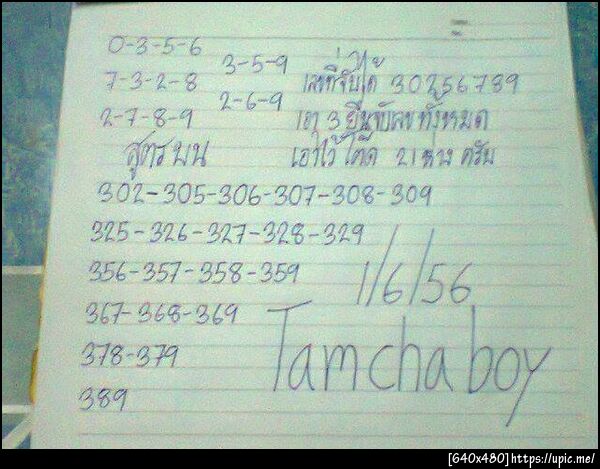 0-3-5-6
3-5-9
7-3-2-8
2-6-9
2-7-8-9
เลขที่จับได้ 30256789
เอา 3 ยืนจับเลขทั้งหมด
สูตรบน
เอาไว้โต๊ด 21 หาง ครับ
302-305-306-307-308-309
325-326-327-328-329
356-357-358-359
1/6/56
367-368-369
Tamchaboy
378-379
389
[640x480]https://upic.me/